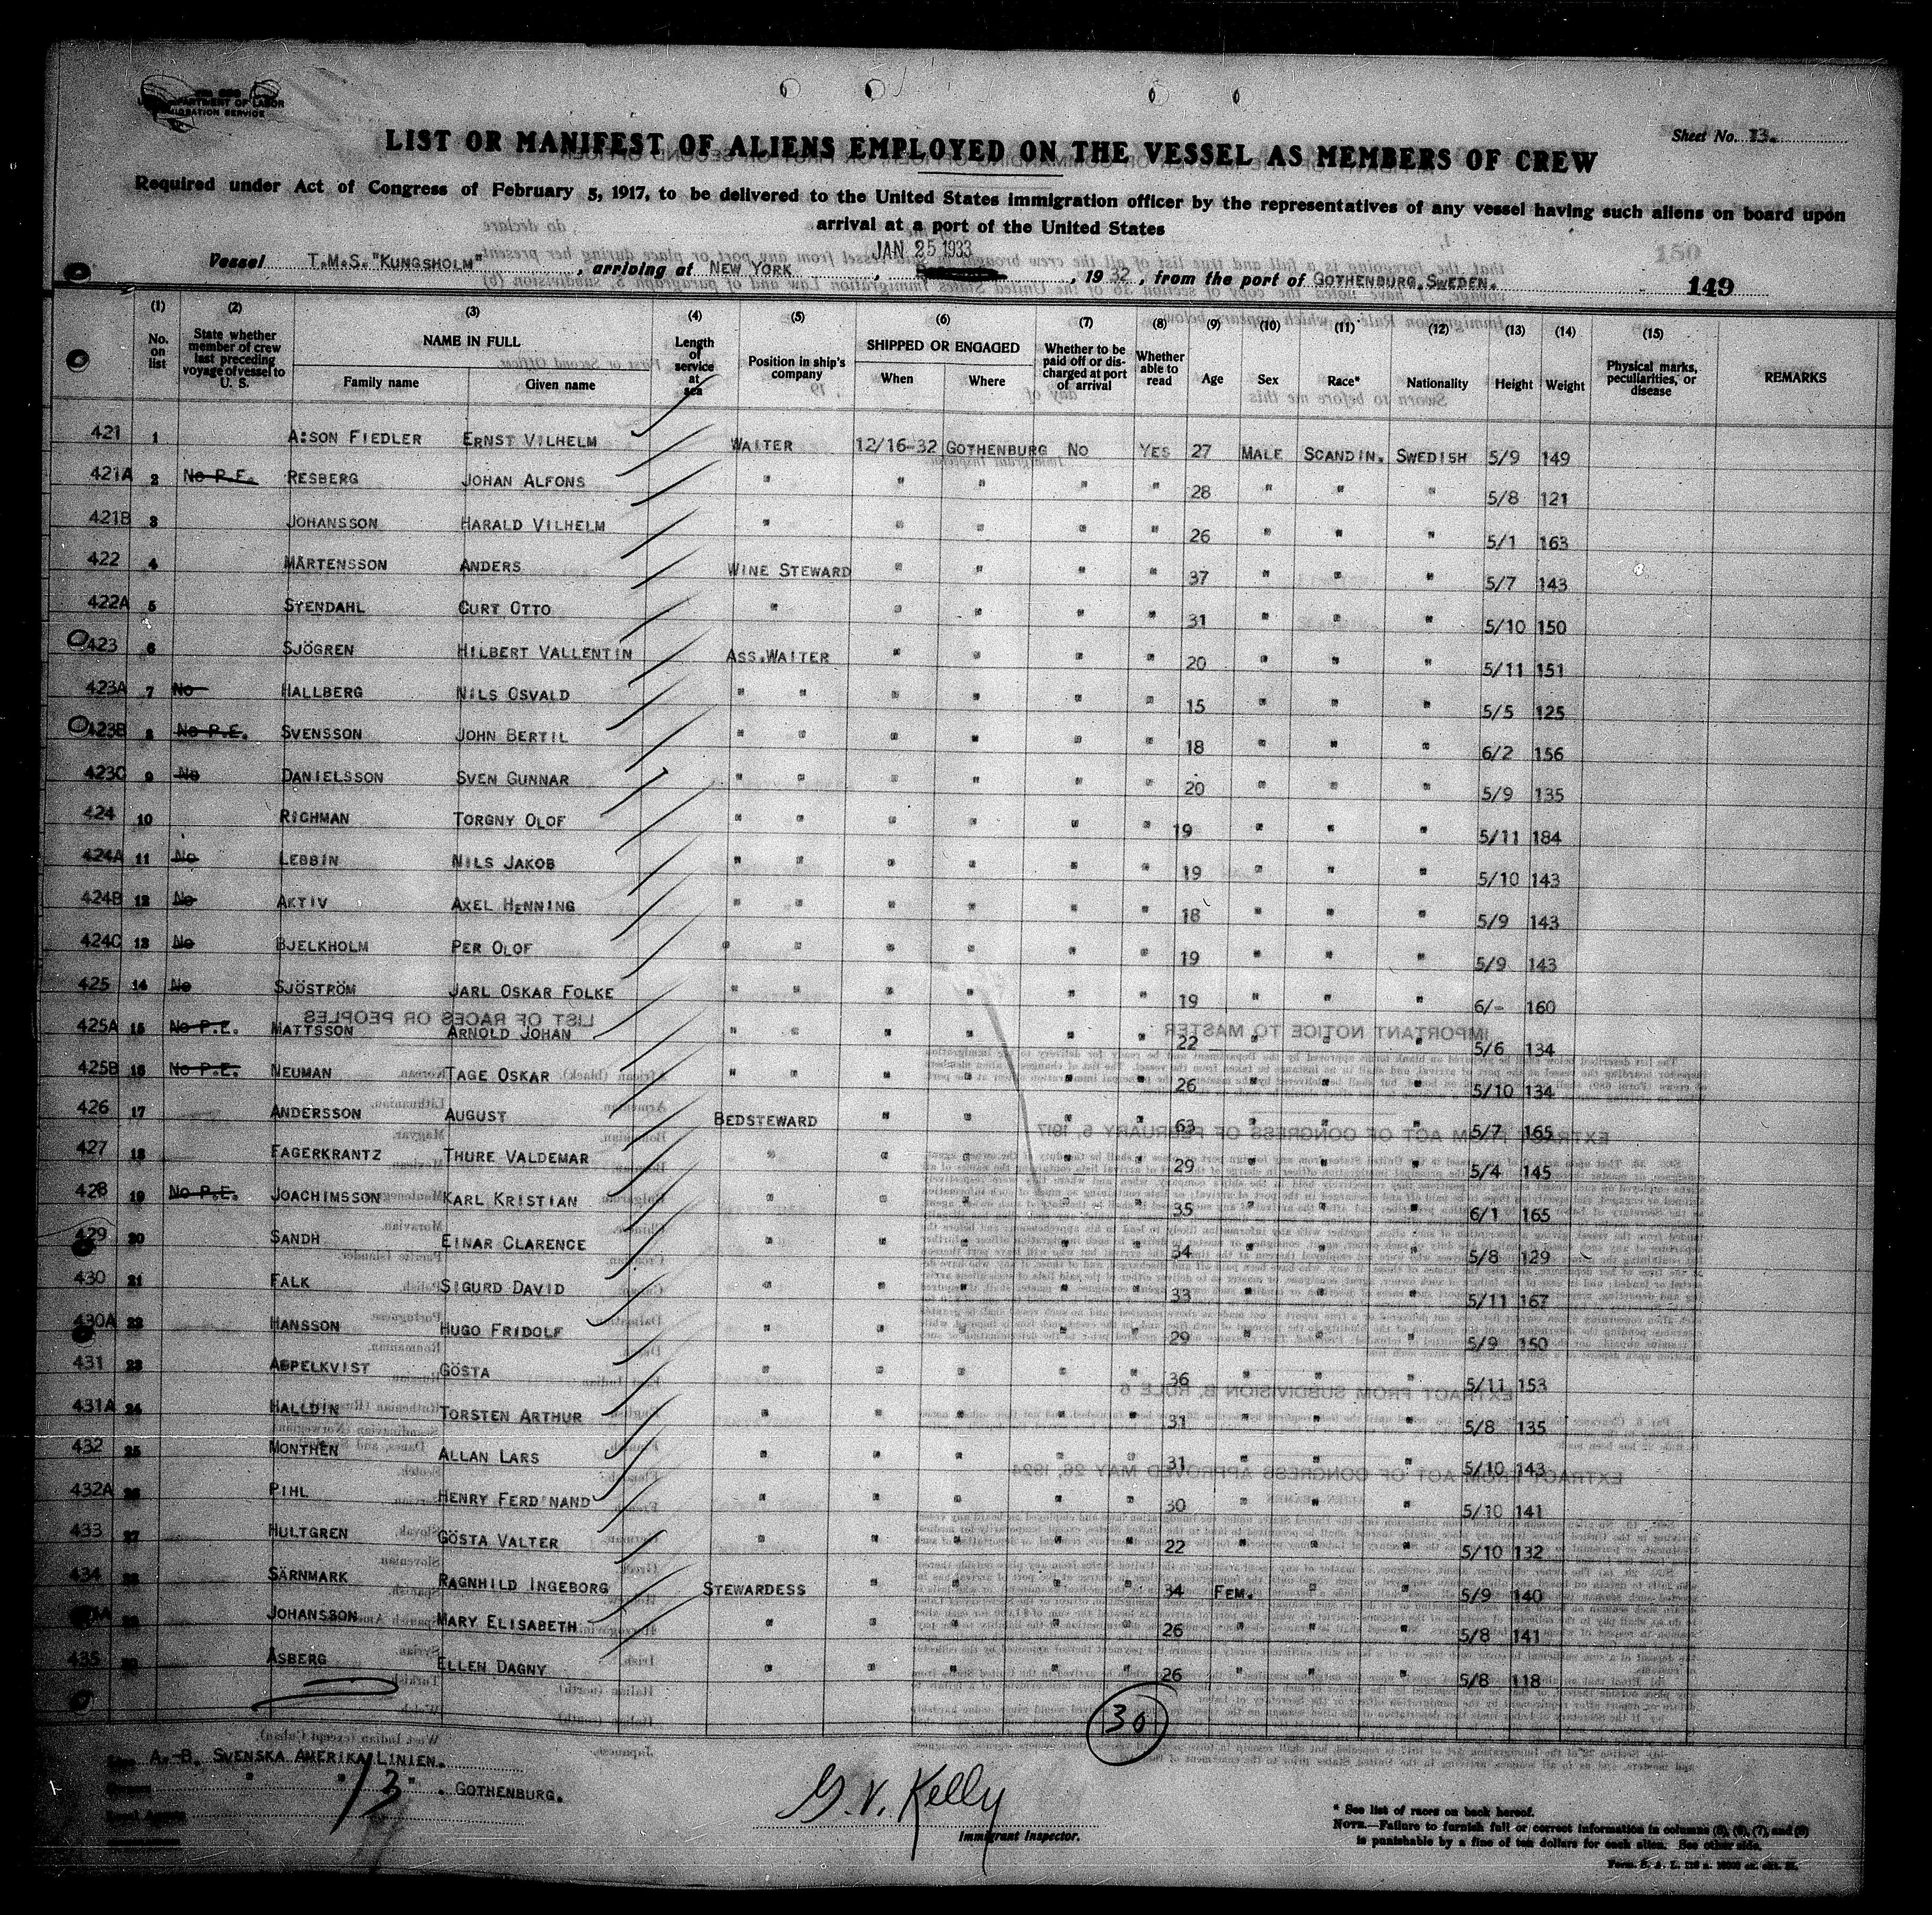 U.S. DEPARTMENT OF LABOR
IMMIGRATION SERVICE
Sheet No. 13.
LIST OR MANIFEST OF ALIENS EMPLOYED ON THE VESSEL AS MEMBERS OF CREW
Required under Act of Congress of February 5, 1917, to be delivered to the United States immigration officer by the representatives of any vessel having such aliens on board upon
arrival at a port of the United States
JAN 25 1933
Vessel T.M.S. "KUNGSHOLM", arriving at NEW YORK, 1932, from the port of GOTHENBURG, SWEDEN.
149
(1) (2) (3) (4) (5) (6) (7) (8) (9) (10) (11) (12) (13) (14) (15)
No. on list State whether member of crew last preceding voyage of vessel to U. S. NAME IN FULL Family name Given name Length of service at sea Position in ship's company SHIPPED OR ENGAGED When Where Whether to be paid off or discharged at port of arrival Whether able to read Age Sex Race* Nationality Height Weight Physical marks, peculiarities, or disease REMARKS
421 1 A:SON FIEDLER ERNST VILHELM WAITER 12/16-32 GOTHENBURG NO YES 27 MALE SCANDIN. SWEDISH 5/9 149
421A 2 No P.E. RESBERG JOHAN ALFONS " " " " " 28 " " " 5/8 121
421B 3 JOHANSSON HARALD VILHELM " " " " " 26 " " " 5/1 163
422 4 MÅRTENSSON ANDERS WINE STEWARD " " " " 37 " " " 5/7 143
422A 5 STENDAHL CURT OTTO " " " " " 31 " " " 5/10 150
423 6 SJÖGREN HILBERT VALLENTIN ASS.WAITER " " " " 20 " " " 5/11 151
423A 7 No HALLBERG NILS OSVALD " " " " " " 15 " " " 5/5 125
423B 8 No P.E. SVENSSON JOHN BERTIL " " " " " " 18 " " " 6/2 156
423C 9 No DANIELSSON SVEN GUNNAR " " " " " " 20 " " " 5/9 135
424 10 RICHMAN TORGNY OLOF " " " " " " 19 " " " 5/11 184
424A 11 No LEBBIN NILS JAKOB " " " " " " 19 " " " 5/10 143
424B 12 No AKTIV AXEL HENNING " " " " " " 18 " " " 5/9 143
424C 13 No BJELKHOLM PER OLOF " " " " " " 19 " " " 5/9 143
425 14 No SJÖSTRÖM JARL OSKAR FOLKE " " " " " " 19 " " " 6/- 160
425A 15 No P.E. MATTSSON ARNOLD JOHAN " " " " " " 22 " " " 5/6 134
425B 16 No P.E. NEUMAN TAGE OSKAR " " " " " " 26 " " " 5/10 134
426 17 ANDERSSON AUGUST BEDSTEWARD " " " " 63 " " " 5/7 165
427 18 FAGERKRANTZ THURE VALDEMAR " " " " " 29 " " " 5/4 145
428 19 No P.E. JOACHIMSSON KARL KRISTIAN " " " " " 35 " " " 6/1 165
429 20 SANDH EINAR CLARENCE " " " " " 34 " " " 5/8 129
430 21 FALK SIGURD DAVID " " " " " 33 " " " 5/11 167
430A 22 HANSSON HUGO FRIDOLF " " " " " 29 " " " 5/9 150
431 23 APPELKVIST GÖSTA " " " " " 36 " " " 5/11 153
431A 24 HALLDIN TORSTEN ARTHUR " " " " " 31 " " " 5/8 135
432 25 MONTHEN ALLAN LARS " " " " " 31 " " " 5/10 143
432A 26 PIHL HENRY FERDINAND " " " " " 30 " " " 5/10 141
433 27 HULTGREN GÖSTA VALTER " " " " " 22 " " " 5/10 132
434 28 SÄRNMARK RAGNHILD INGEBORG STEWARDESS " " " " 34 FEM. " " 5/9 140
29 JOHANSSON MARY ELISABETH " " " " " 26 " " " 5/8 141
435 30 ÅSBERG ELLEN DAGNY " " " " " 26 " " " 5/8 118
30
A.-B. SVENSKA AMERIKA LINIEN.
" " " . GOTHENBURG.
13
G. V. Kelly
Immigrant Inspector.
* See list of races on back hereof.
NOTE.—Failure to furnish full or correct information in columns (5), (6), (7), and (8)
is punishable by a fine of ten dollars for each alien. See other side.